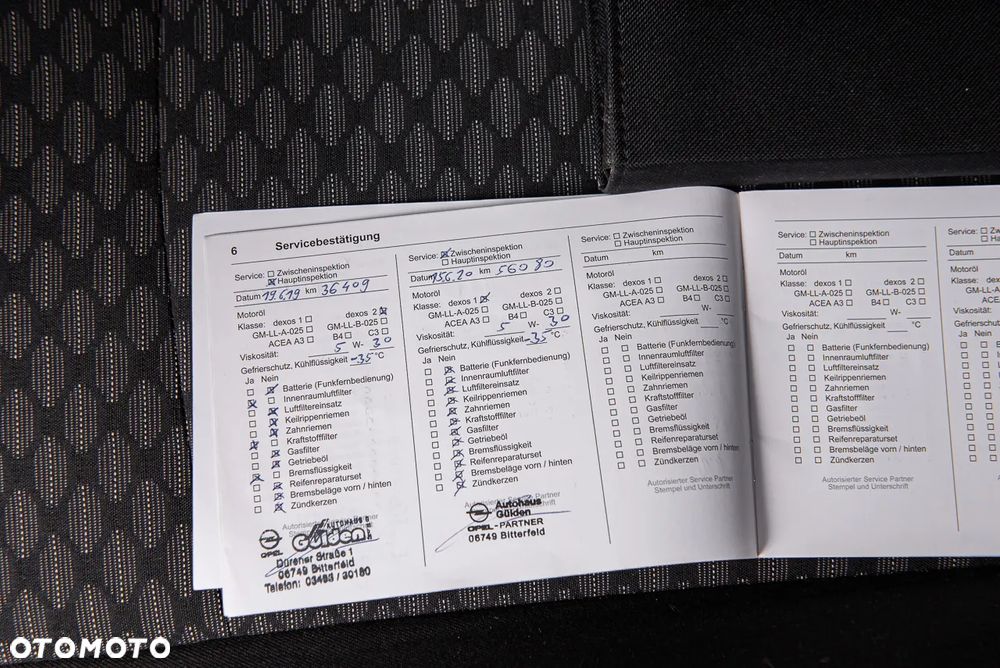 6 Servicebestätigung
Service: Zwischeninspektion
Hauptinspektion
Datum 19.6.19 km 36409
Motoröl
Klasse: dexos 1 dexos 2
GM-LL-A-025 GM-LL-B-025
ACEA A3 B4 C3
Viskosität: 5 W- 30
Gefrierschutz, Kühlflüssigkeit -35 °C
Ja Nein
Batterie (Funkfernbedienung)
Innenraumluftfilter
Luftfiltereinsatz
Keilrippenriemen
Zahnriemen
Kraftstofffilter
Gasfilter
Getriebeöl
Bremsflüssigkeit
Reifenreparaturset
Bremsbeläge vorn / hinten
Zündkerzen
Autorisierter Service
OPEL AUTOHAUS
Gülden
Dürener Straße 1
06749 Bitterfeld
Telefon: 03493 / 30180
Service: Zwischeninspektion
Hauptinspektion
Datum 15.6.20 km 56080
Motoröl
Klasse: dexos 1 dexos 2
GM-LL-A-025 GM-LL-B-025
ACEA A3 B4 C3
Viskosität: 5 W- 30
Gefrierschutz, Kühlflüssigkeit -35 °C
Ja Nein
Batterie (Funkfernbedienung)
Innenraumluftfilter
Luftfiltereinsatz
Keilrippenriemen
Zahnriemen
Kraftstofffilter
Gasfilter
Getriebeöl
Bremsflüssigkeit
Reifenreparaturset
Bremsbeläge vorn / hinten
Zündkerzen
Autorisierter Service Partner
Autohaus
Gülden
OPEL-PARTNER
06749 Bitterfeld
Service: Zwischeninspektion
Hauptinspektion
Datum km
Motoröl
Klasse: dexos 1 dexos 2
GM-LL-A-025 GM-LL-B-025
ACEA A3 B4 C3
Viskosität: W-
Gefrierschutz, Kühlflüssigkeit °C
Ja Nein
Batterie (Funkfernbedienung)
Innenraumluftfilter
Luftfiltereinsatz
Keilrippenriemen
Zahnriemen
Kraftstofffilter
Gasfilter
Getriebeöl
Bremsflüssigkeit
Reifenreparaturset
Bremsbeläge vorn / hinten
Zündkerzen
Autorisierter Service Partner
Stempel und Unterschrift
Service: Zwischeninspektion
Hauptinspektion
Datum km
Motoröl
Klasse: dexos 1 dexos 2
GM-LL-A-025 GM-LL-B-025
ACEA A3 B4 C3
Viskosität: W-
Gefrierschutz, Kühlflüssigkeit °C
Ja Nein
Batterie (Funkfernbedienung)
Innenraumluftfilter
Luftfiltereinsatz
Keilrippenriemen
Zahnriemen
Kraftstofffilter
Gasfilter
Getriebeöl
Bremsflüssigkeit
Reifenreparaturset
Bremsbeläge vorn / hinten
Zündkerzen
Autorisierter Service Partner
Stempel und Unterschrift
Service:
Datum
Motoröl
Klasse:
GM-LL
Viskosität:
Gefrierschutz
Ja Nein
OTOMOTO